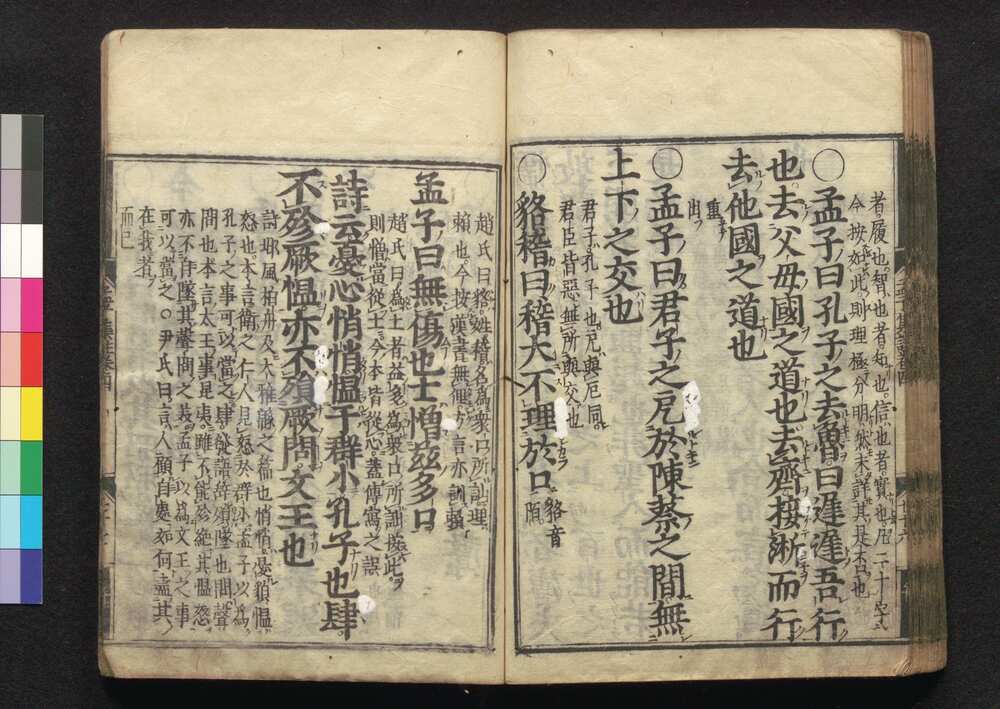 者履也智也者知也信也者實也凡二十字
今按如此則理極分明然未詳其是否也
○孟子曰孔子之去魯曰遲遲吾行
也去父母國之道也去齊接淅而行
去他國之道也
重出
○孟子曰君子之戹於陳蔡之間無
上下之交也
君子孔子也戹與厄同
君臣皆惡無所與交也
○貉稽曰稽大不理於口
貉音
陌
趙氏曰貉姓稽名爲衆口所訕理
賴也今按漢書無俚方言亦訓賴
孟子曰無傷也士憎茲多口
趙氏曰爲士者益多爲衆口所訕按此
則憎當從土今本皆從心蓋傳寫之誤
詩云憂心悄悄慍于群小孔子也肆
不殄厥慍亦不殞厥問文王也
詩邶風柏舟及大雅緜之篇也悄悄憂貌慍
怒也本言衛之仁人見怒於群小孟子以爲
孔子之事可以當之肆發語辭殞墜也問聲
問也本言太王事昆夷雖不能殄絕其慍怒
亦不自墜其聲問之美孟子以爲文王之事
可以當之○尹氏曰言人顧自處如何盡其
在我者
而已